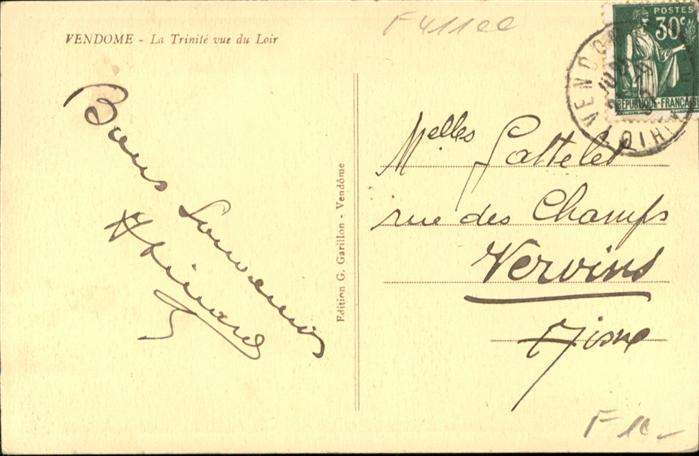 F 411ee
VENDOME - La Trinité vue du Loir
POSTES
30c
RÉPUBLIQUE FRANÇAISE
VENDOME
Bons Souvenirs
Edition G. Garillon - Vendôme
Melles Gattelet
rue des Champs
Vervins
Aisne
F 10-